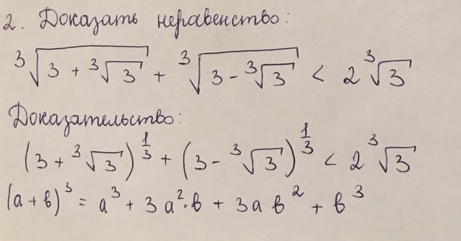 2. Доказать неравенство:
∛(3 + ∛3) + ∛(3 - ∛3) < 2∛3
Доказательство:
(3 + ∛3)^(1/3) + (3 - ∛3)^(1/3) < 2∛3
(a + b)³ = a³ + 3a²·b + 3ab² + b³